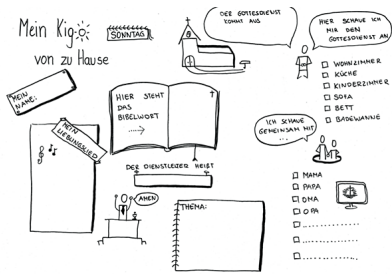 Mein Kigo
von zu Hause
SONNTAG
DER GOTTESDIENST
KOMMT AUS
HIER SCHAUE ICH
MIR DEN
GOTTESDIENST AN
WOHNZIMMER
KÜCHE
KINDERZIMMER
SOFA
BETT
BADEWANNE
MEIN
NAME:
HIER STEHT
DAS
BIBELWORT
MEIN
LIEBLINGSLIED
ICH SCHAUE
GEMEINSAM MIT
...
DER DIENSTLEITER HEIßT
MAMA
PAPA
OMA
OPA
AMEN
THEMA: